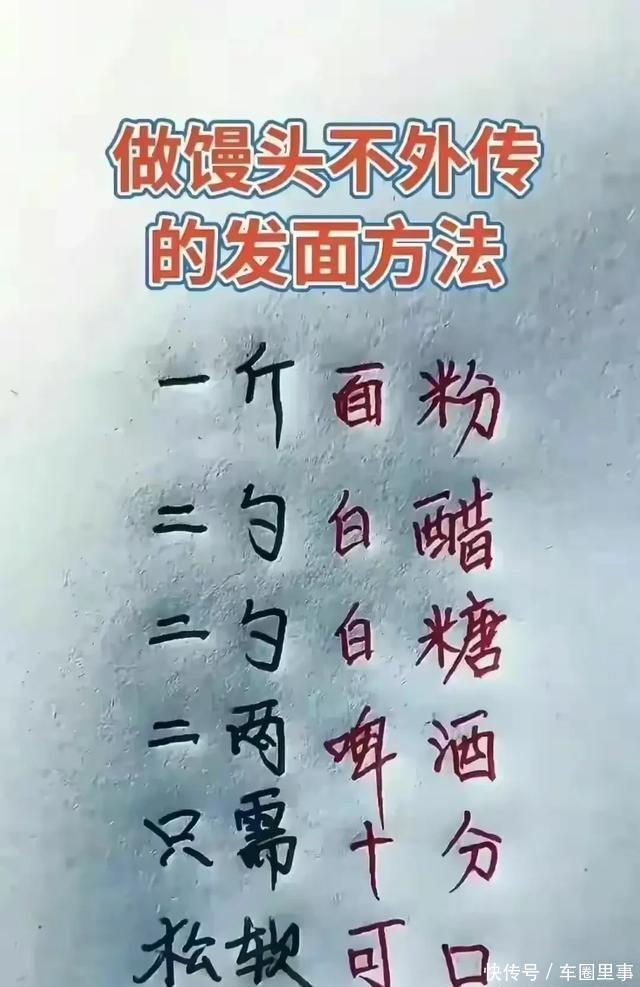 做馒头不外传
的发面方法
一斤面粉
二勺白醋
二勺白糖
二两啤酒
只需十分
松软可口
快传号/车圈里事